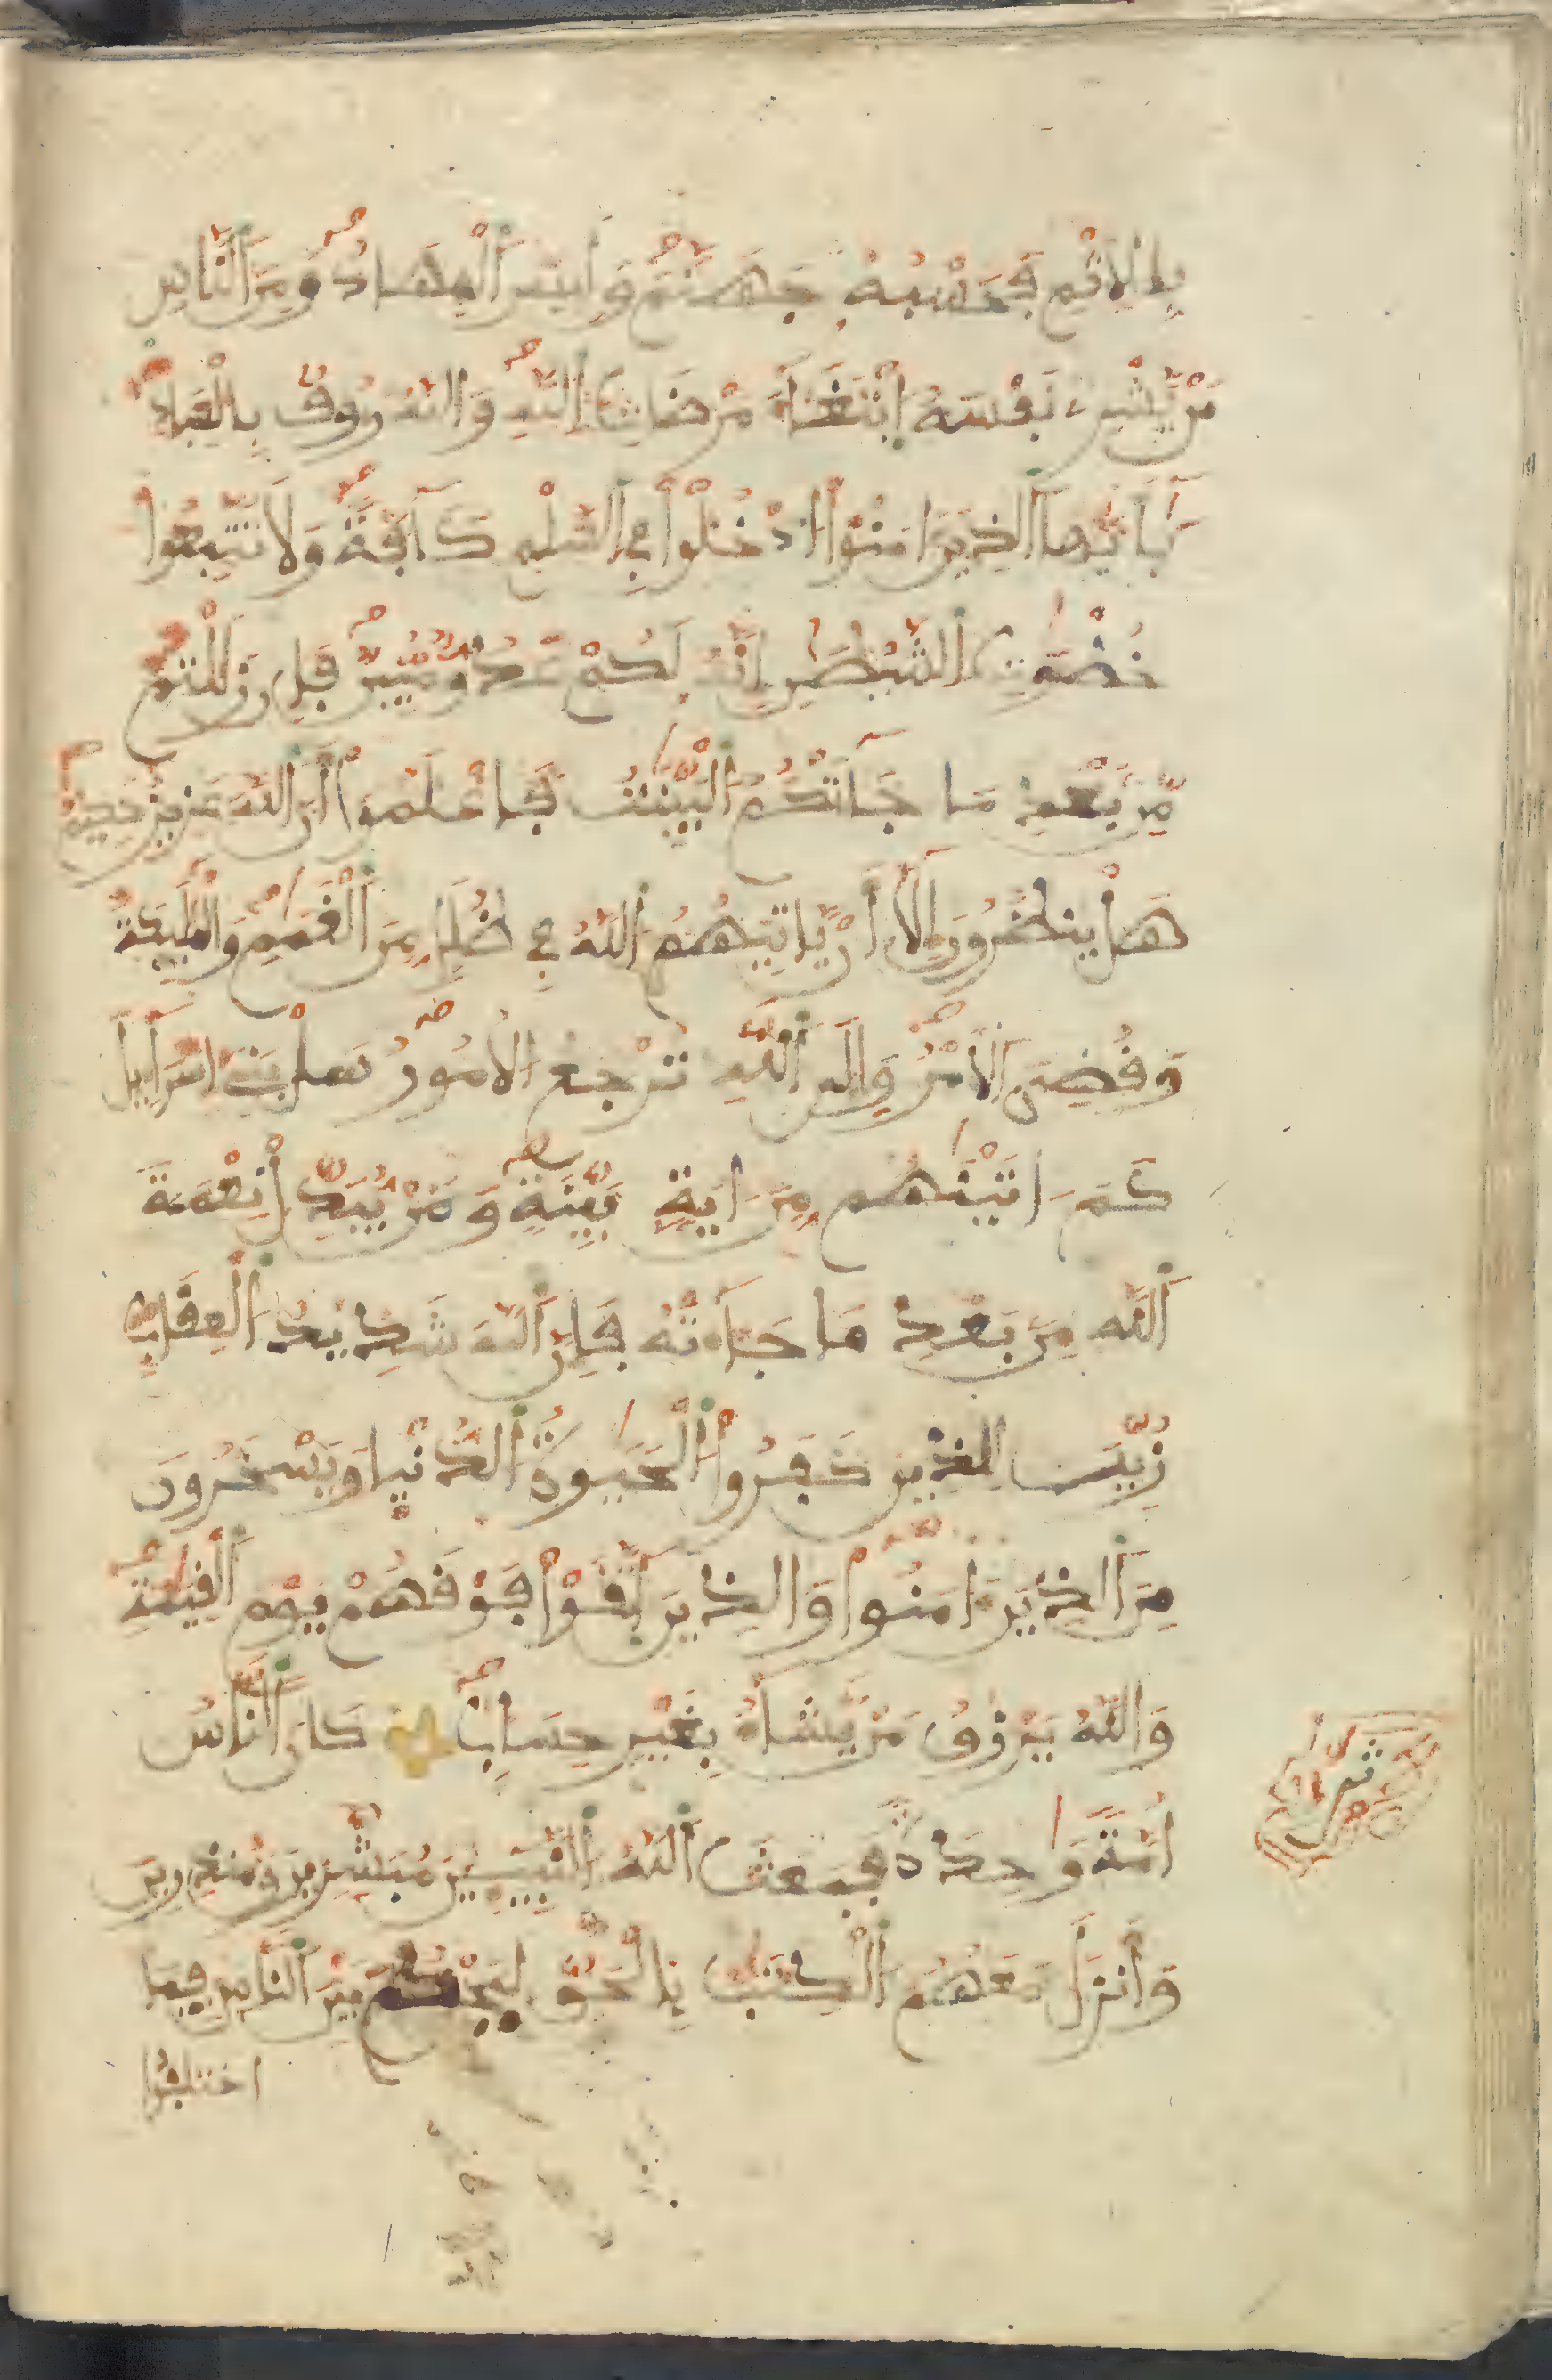 بِالِاثْمِ فَحَسْبُهُ جَهَنَّمُ وَلَبِيسَ الْمِهَادُ وَمِنَ النَّاسِ
مَنْ يَّشْرِے نَفْسَهُ ابْتِغَآءَ مَرْضَاتِ اللَّهِ وَاللَّهُ رَءُوفٌ بِالْعِبَادِ
يَٰٓأَيُّهَا الَّذِينَ ءَامَنُوا ادْخُلُوا فِي السَّلْمِ كَآفَّةً وَلَا تَتَّبِعُوا
خُطْوَٰتِ الشَّيْطَٰنِ إِنَّهُ لَكُمْ عَدُوٌّ مُّبِينٌ فَإِن زَلَلْتُم
مِّن بَعْدِ مَا جَآءَتْكُمُ الْبَيِّنَٰتُ فَاعْلَمُوا أَنَّ اللَّهَ عَزِيزٌ حَكِيمٌ
هَلْ يَنظُرُونَ إِلَّآ أَنْ يَّاتِيَهُمُ اللَّهُ فِي ظُلَلٍ مِّنَ الْغَمَٰمِ وَالْمَلَٰٓئِكَةُ
وَقُضِيَ الْأَمْرُ وَإِلَى اللَّهِ تُرْجَعُ الْأُمُورُ سَلْ بَنِے إِسْرَآءِيلَ
كَمَ اتَيْنَٰهُم مِّنَ ايَةٍ بَيِّنَةٍ وَمَنْ يُّبَدِّلْ نِعْمَةَ
اللَّهِ مِن بَعْدِ مَا جَآءَتْهُ فَإِنَّ اللَّهَ شَدِيدُ الْعِقَابِ
زُيِّنَ لِلَّذِينَ كَفَرُوا الْحَيَوٰةُ الدُّنْيَا وَيَسْخَرُونَ
مِنَ الَّذِينَ ءَامَنُوا وَالَّذِينَ اتَّقَوْا فَوْقَهُمْ يَوْمَ الْقِيَٰمَةِ
وَاللَّهُ يَرْزُقُ مَنْ يَّشَآءُ بِغَيْرِ حِسَابٍ كَانَ النَّاسُ
أُمَّةً وَٰحِدَةً فَبَعَثَ اللَّهُ النَّبِيٓـِٕينَ مُبَشِّرِينَ وَمُنذِرِينَ
وَأَنزَلَ مَعَهُمُ الْكِتَٰبَ بِالْحَقِّ لِيَحْكُمَ بَيْنَ النَّاسِ فِيمَا
اختلفوا